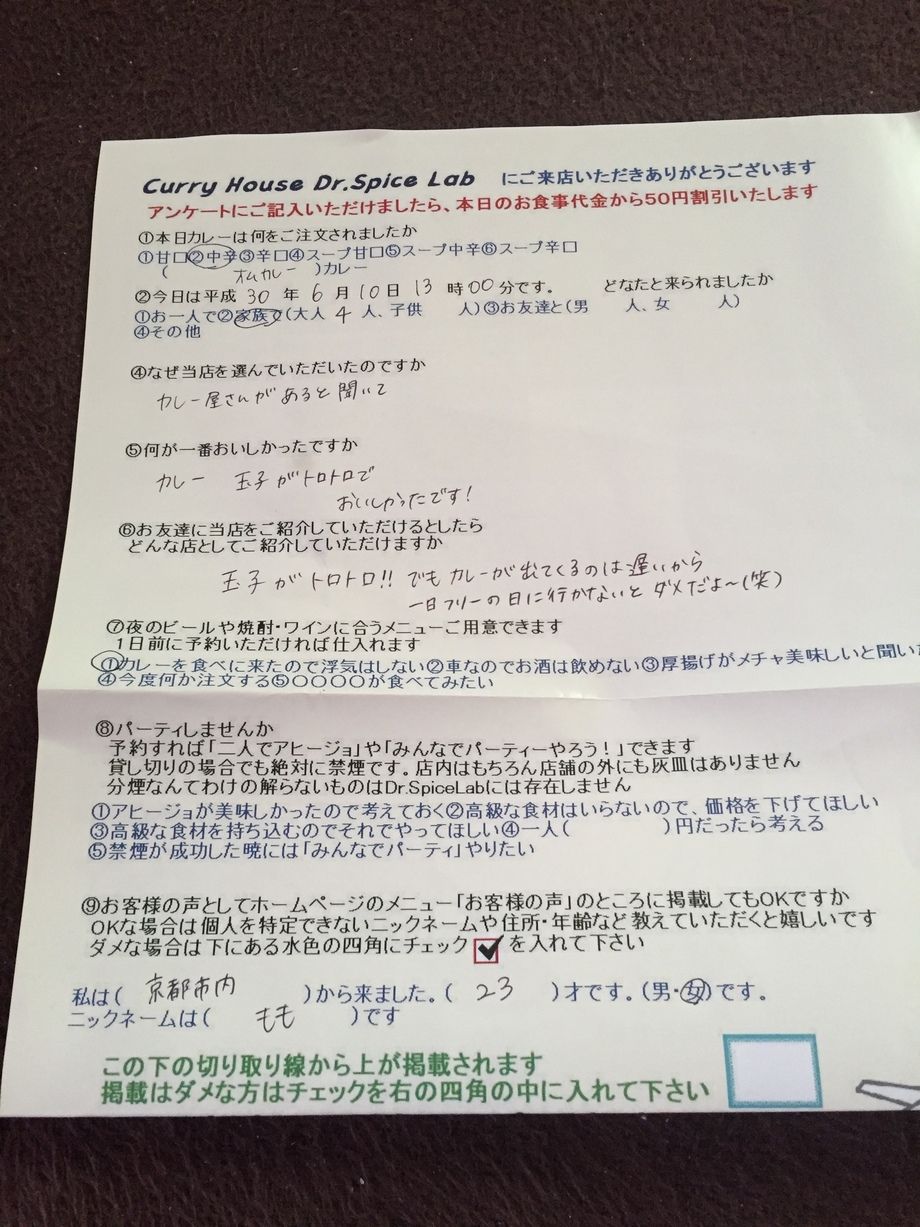 Curry House Dr.Spice Lab にご来店いただきありがとうございます
アンケートにご記入いただけましたら、本日のお食事代金から50円割引いたします
①本日カレーは何をご注文されましたか
①甘口②中辛③辛口④スープ甘口⑤スープ中辛⑥スープ辛口
( オムカレー )カレー
②今日は平成 30 年 6 月 10 日 13 時 00 分です。 どなたと来られましたか
①お一人で②家族で(大人 4 人、子供 人)③お友達と(男 人、女 人)
④その他
④なぜ当店を選んでいただいたのですか
カレー屋さんがあると聞いて
⑤何が一番おいしかったですか
カレー 玉子がトロトロで
おいしかったです!
⑥お友達に当店をご紹介していただけるとしたら
どんな店としてご紹介していただけますか
玉子がトロトロ!! でもカレーが出てくるのは遅いから
一日フリーの日に行かないとダメだよ〜(笑)
⑦夜のビールや焼酎・ワインに合うメニューご用意できます
1日前に予約いただければ仕入れます
①カレーを食べに来たので浮気はしない②車なのでお酒は飲めない③厚揚げがメチャ美味しいと聞い
④今度何か注文する⑤〇〇〇〇が食べてみたい
⑧パーティしませんか
予約すれば「二人でアヒージョ」や「みんなでパーティーやろう!」できます
貸し切りの場合でも絶対に禁煙です。店内はもちろん店舗の外にも灰皿はありません
分煙なんてわけの解らないものはDr.SpiceLabには存在しません
①アヒージョが美味しかったので考えておく②高級な食材はいらないので、価格を下げてほしい
③高級な食材を持ち込むのでそれでやってほしい④一人( )円だったら考える
⑤禁煙が成功した暁には「みんなでパーティ」やりたい
⑨お客様の声としてホームページのメニュー「お客様の声」のところに掲載してもOKですか
OKな場合は個人を特定できないニックネームや住所・年齢など教えていただくと嬉しいです
ダメな場合は下にある水色の四角にチェック を入れて下さい
私は( 京都市内 )から来ました。( 23 )才です。(男・女)です。
ニックネームは( もも )です
この下の切り取り線から上が掲載されます
掲載はダメな方はチェックを右の四角の中に入れて下さい